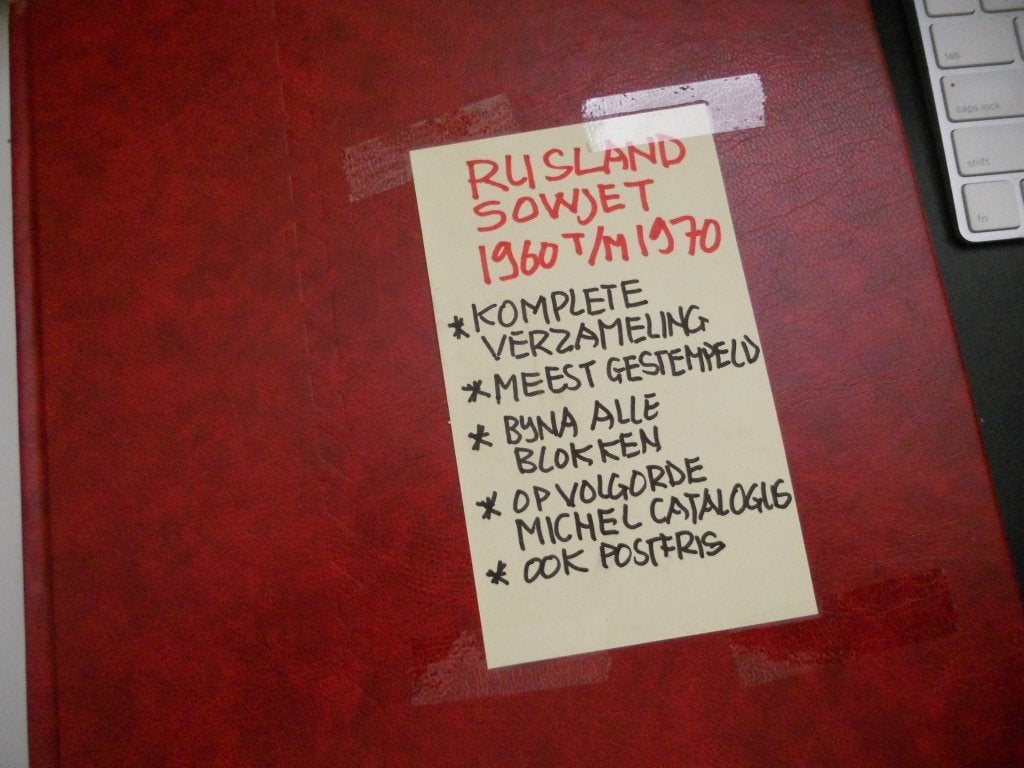 RUSLAND
SOWJET
1960 T/M 1970
* KOMPLETE
VERZAMELING
* MEEST GESTEMPELD
* BYNA ALLE
BLOKKEN
* OP VOLGORDE
MICHEL CATALOGUS
* OOK POSTFRIS
tab
caps lock
shift
fn